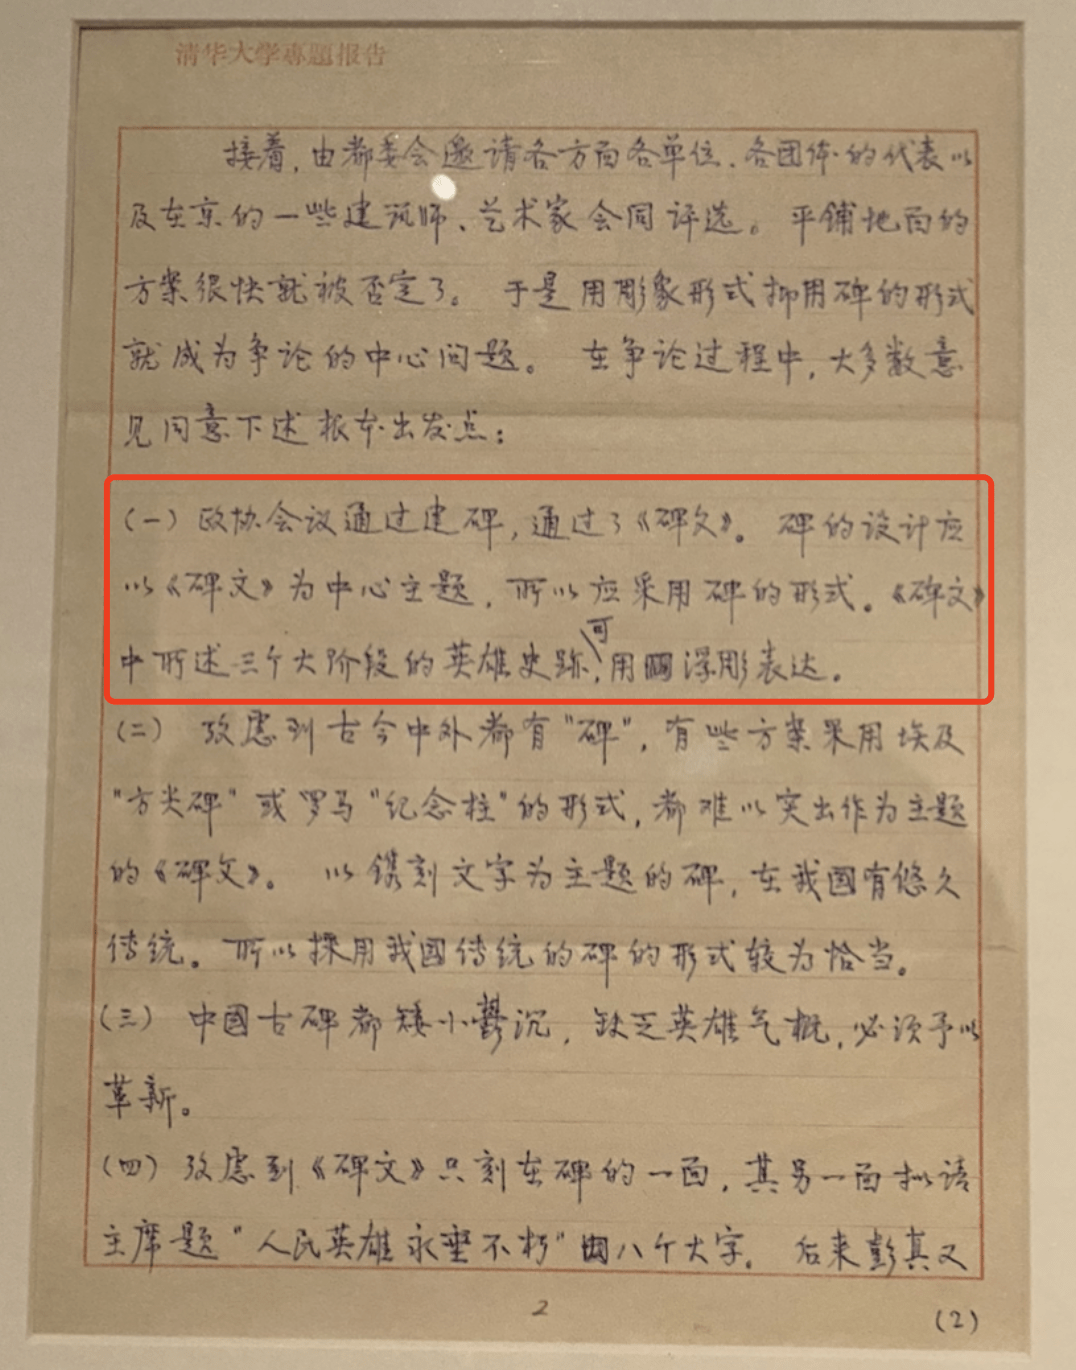 清华大学專題报告
接着，由都委会邀请各方面各单位、各团体的代表以
及在京的一些建筑师、艺术家会同评选。平铺地面的
方案很快就被否定了。于是用彫象形式抑用碑的形式
就成为争论的中心问题。在争论过程中，大多数意
见同意下述根本出发点：
（一）政协会议通过建碑，通过了《碑文》。碑的设计应
以《碑文》为中心主题，所以应采用碑的形式。《碑文》
可
中所述三个大阶段的英雄史跡，用浮彫表达。
（二）攷虑到古今中外都有"碑"，有些方案采用埃及
"方尖碑"或罗马"纪念柱"的形式，都难以突出作为主题
的《碑文》。以鐫刻文字为主题的碑，在我國有悠久
传统。所以採用我國传统的碑的形式较为恰当。
（三）中國古碑都矮小鬱沉，缺乏英雄气概，必须予以
革新。
（四）攷虑到《碑文》只刻在碑的一面，其另一面拟请
主席题"人民英雄永垂不朽"八个大字。后来彭真又
2
(2)